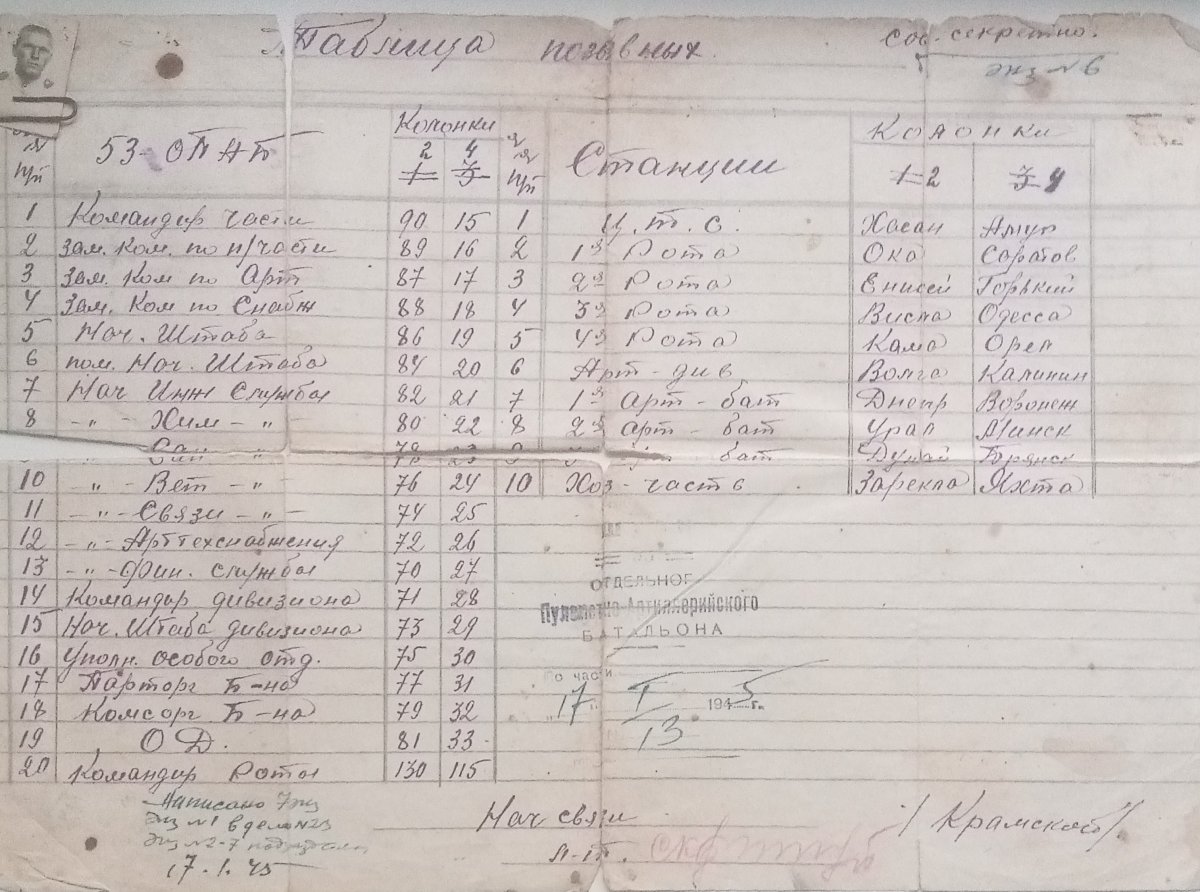 Таблица позывных.
Сов. секретно.
Экз №6
53 ОПАБ Колонки № Станции Колонки
п/п 1 2 3 4 п/п 1 2 3 4
1 Командир части 90 15 1 Ц.Т.С. Хасан Амур
2 Зам. Ком. по п/части 89 16 2 1я Рота Ока Саратов
3 Зам. Ком по Арт 87 17 3 2я Рота Енисей Горький
4 Зам. Ком по Снабж 88 18 4 3я Рота Висла Одесса
5 Нач. Штаба 86 19 5 4я Рота Кама Орел
6 пом. Нач. Штаба 84 20 6 Арт-див Волга Калинин
7 Нач Инж Службы 82 21 7 1я Арт-бат Днепр Воронеж
8 -"- Хим -"- 80 22 8 2я Арт-бат Урал Минск
Сан -"- 78 23 бат Дунай Брянск
10 -"- Вет -"- 76 24 10 Хоз-часть Зарекла Яхта
11 -"- Связи -"- 74 25
12 -"- Арттехснабжения 72 26
13 -"- фин. службы 70 27
14 Командир дивизиона 71 28
15 Нач. Штаба дивизиона 73 29
16 Уполн. особого отд. 75 30
17 Парторг Б-на 77 31
18 Комсорг Б-на 79 32
19 О Д. 81 33
20 Командир Роты 130 115
ОТДЕЛЬНОГ
Пулеметно-Артиллерийского
БАТАЛЬОНА
по части
"17" I 1945 г.
13
Написано 7 экз
Экз №1 в дело №23
Экз №2-7
17.1.45
Нач связи
л-т. /Крамской/